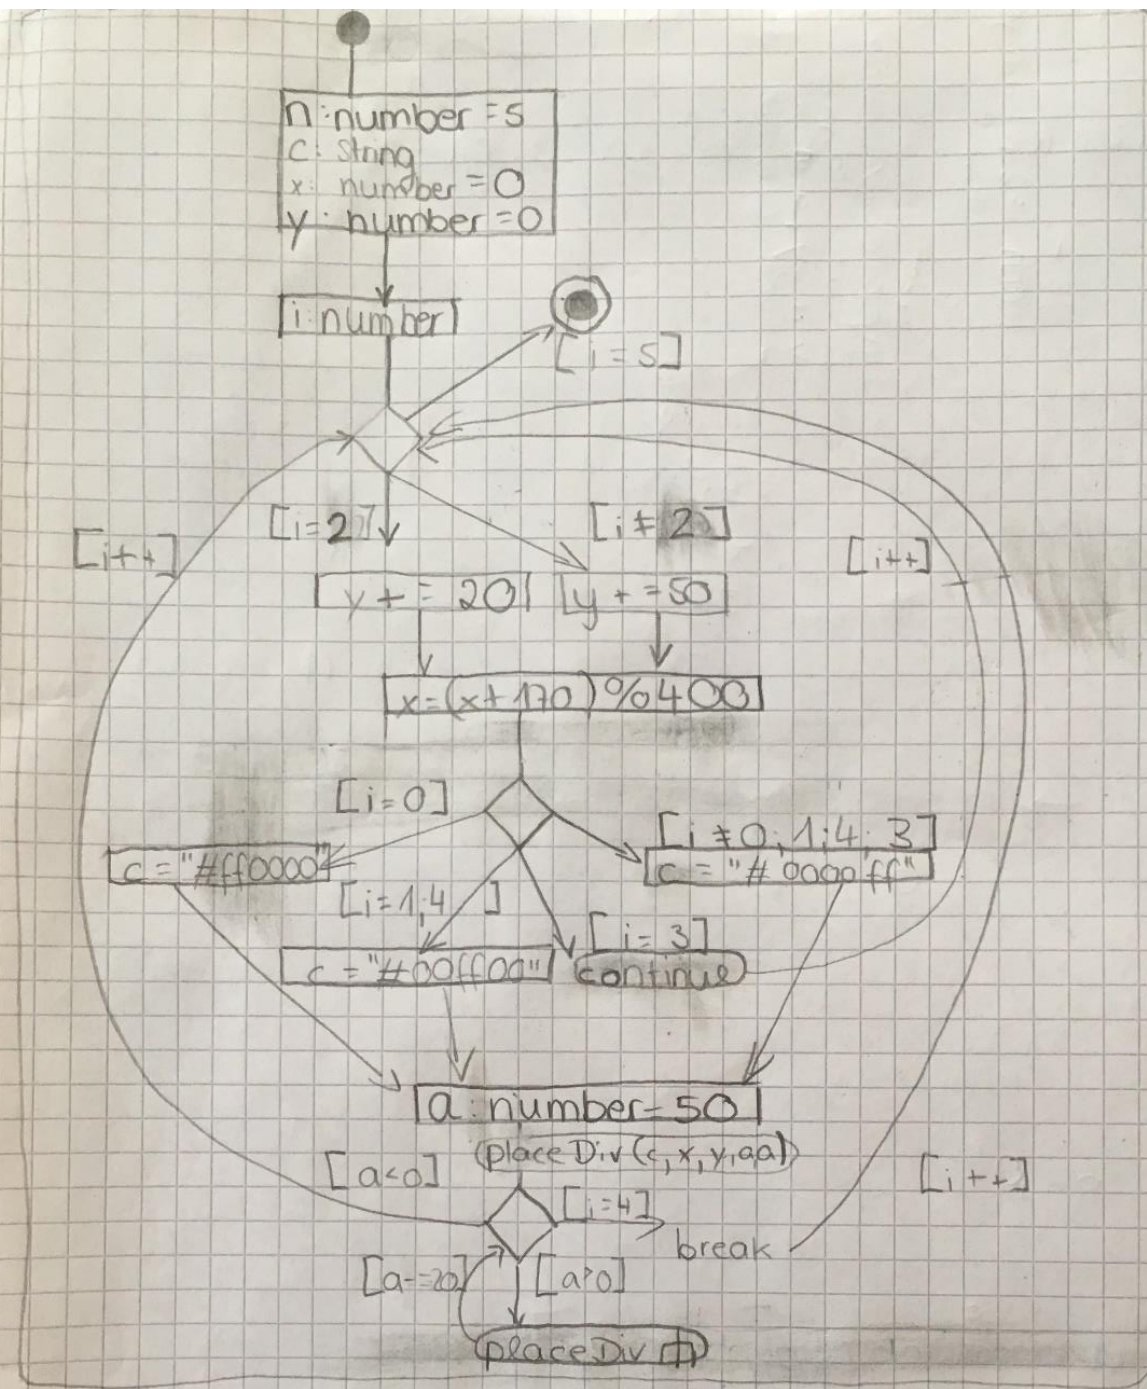 n:number=5
c: String
x: number=0
y: number=0
i:number
[i=5]
[i=2]
[i≠2]
[i++]
[i++]
y+=20
y+=50
x=(x+170)%400
[i=0]
[i≠0;1;4;3]
c="#ff0000"
c="#0000ff"
[i=1;4 ]
[i=3]
c="#00ff00"
continue
a:number=50
placeDiv(c,x,y,a,a)
[a<0]
[i++]
[i=4]
break
[a-=20]
[a>0]
placeDiv